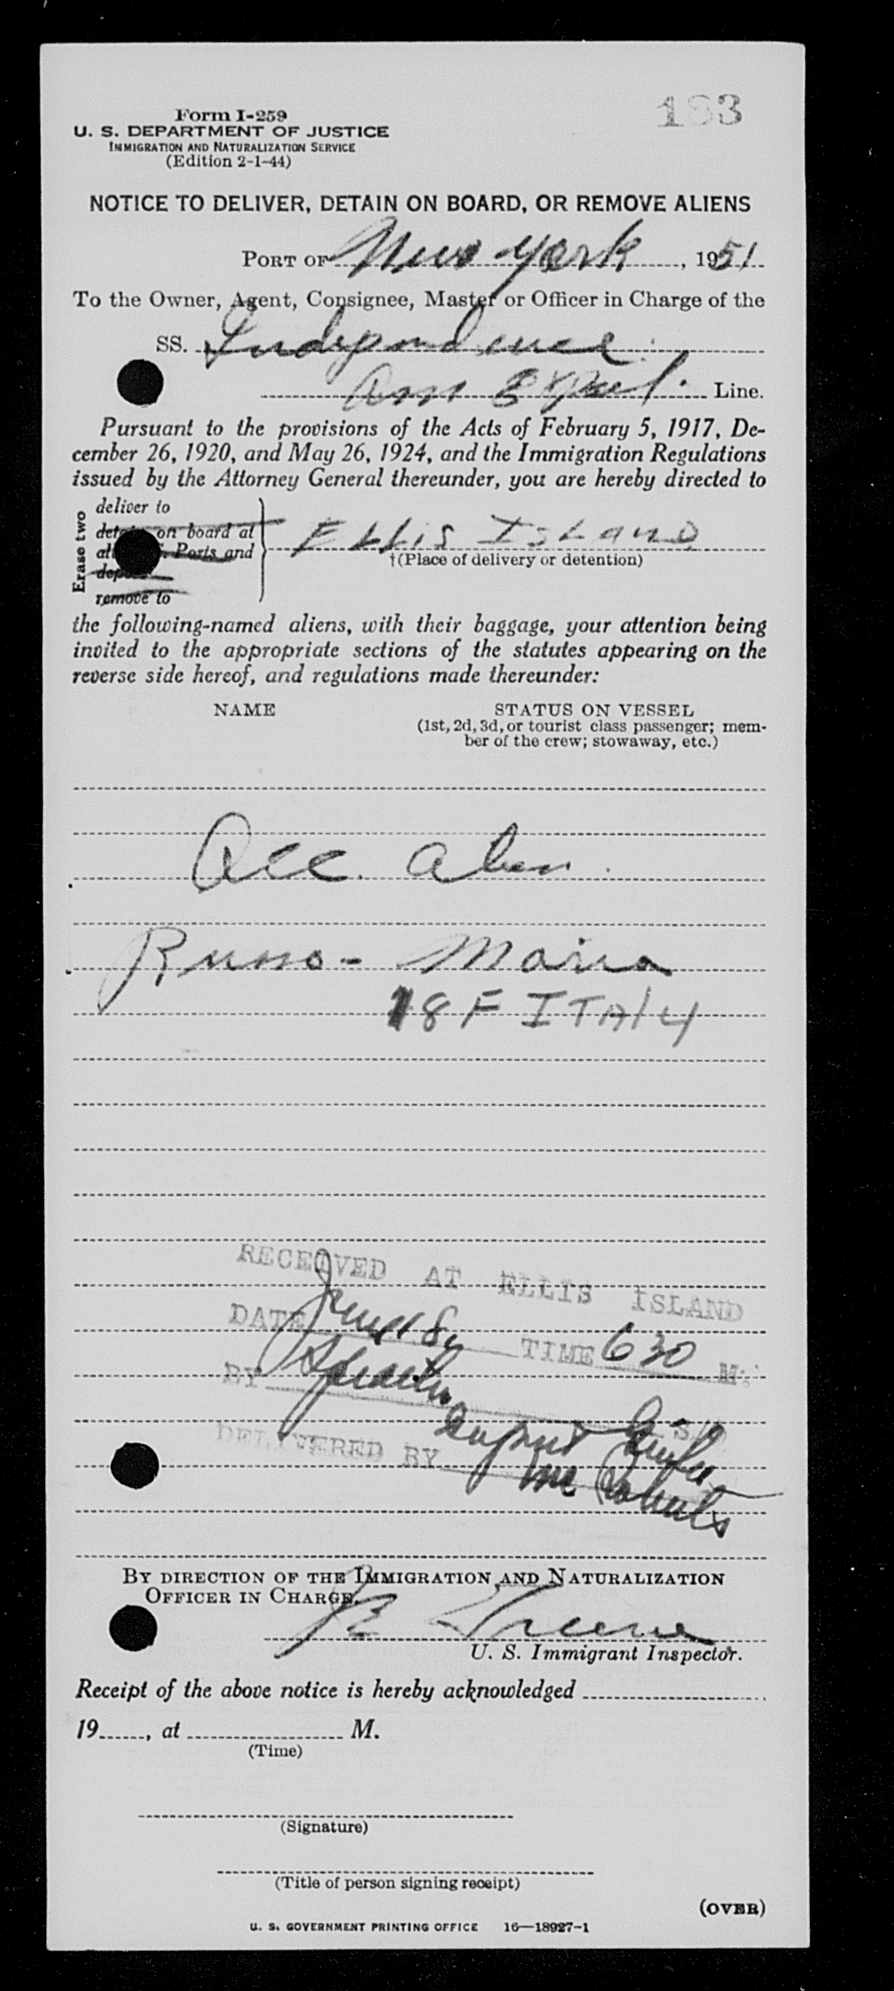 183
Form I-259
U. S. DEPARTMENT OF JUSTICE
IMMIGRATION AND NATURALIZATION SERVICE
(Edition 2-1-44)
NOTICE TO DELIVER, DETAIN ON BOARD, OR REMOVE ALIENS
PORT OF New York, 1951
To the Owner, Agent, Consignee, Master or Officer in Charge of the
SS. Independence
Am Export. Line.
Pursuant to the provisions of the Acts of February 5, 1917, De-
cember 26, 1920, and May 26, 1924, and the Immigration Regulations
issued by the Attorney General thereunder, you are hereby directed to
Erase two
deliver to
detain on board at
all U. S. Ports and
deport
remove to
ELLIS ISLAND
†(Place of delivery or detention)
the following-named aliens, with their baggage, your attention being
invited to the appropriate sections of the statutes appearing on the
reverse side hereof, and regulations made thereunder:
NAME
STATUS ON VESSEL
(1st, 2d, 3d, or tourist class passenger; mem-
ber of the crew; stowaway, etc.)
Acc. alien
Russo - Maria
18 F ITALY
RECEIVED AT ELLIS ISLAND
DATE June 18 TIME 630 M.
BY
DELIVERED BY
BY DIRECTION OF THE IMMIGRATION AND NATURALIZATION
OFFICER IN CHARGE.
Greene
U. S. Immigrant Inspector.
Receipt of the above notice is hereby acknowledged
19, at M.
(Time)
(Signature)
(Title of person signing receipt)
(OVER)
U. S. GOVERNMENT PRINTING OFFICE 16—18927-1